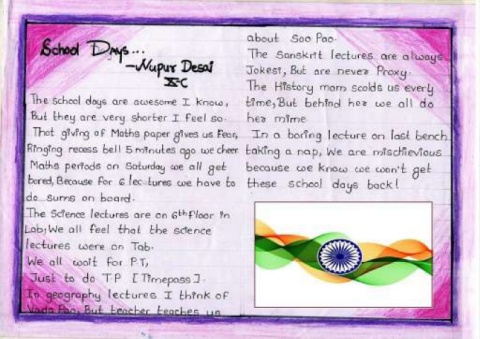 School Days...
-Nupur Desai
X-C
The school days are awesome I know,
But they are very shorter I feel so.
That giving of Maths paper gives us Fear,
Ringing recess bell 5 minutes ago we cheer
Maths periods on Saturday we all get
bored, Because for 6 lectures we have to
do sums on board.
The Science lectures are on 6th floor in
Lab; We all feel that the science
lectures were on Tab.
We all wait for P.T,
Just to do T.P [Timepass].
In geography lectures I think of
Vada Pao, But teacher teaches us
about Soo Pao.
The Sanskrit lectures are always
Jokest, But are never Proxy.
The History mam scolds us every
time, But behind her we all do
her mime.
In a boring lecture on last bench
taking a nap, We are mischievious
because we know we won't get
these school days back!